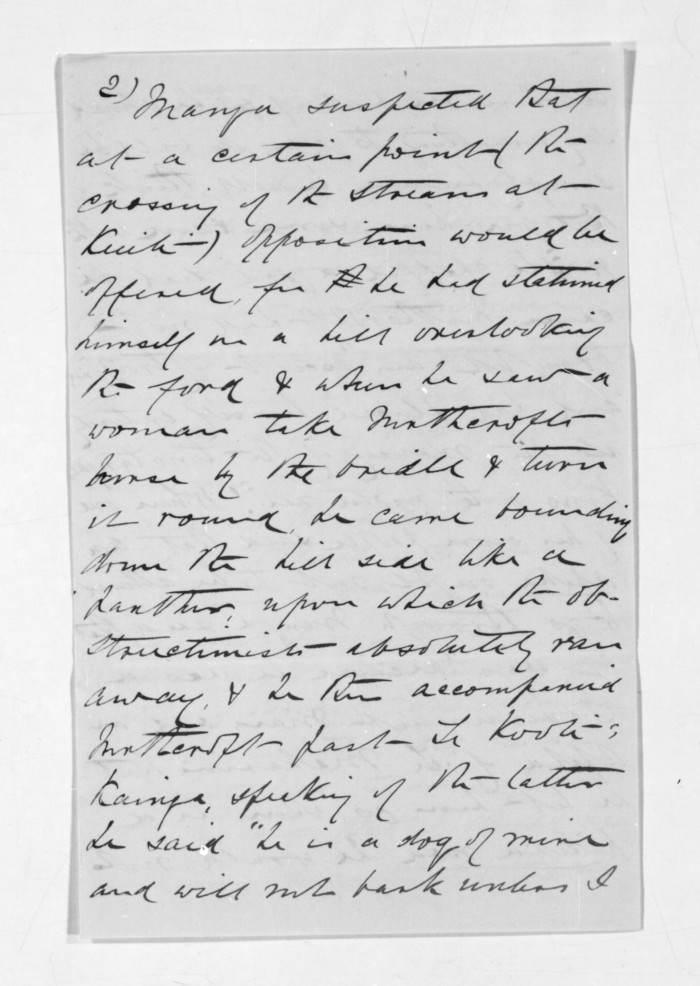 2) Manga suspected that
at a certain point (the
crossing of the stream at
Kuiti) opposition would be
offered, for he had stationed
himself on a hill overlooking
the ford & when he saw a
woman take Northcroft's
horse by the bridle & turn
it round, he came bounding
down the hill side like a
panther, upon which the ob-
structionists absolutely ran
away, & he then accompanied
Northcroft past Te Kooti's
Kainga, speaking of the latter
he said "he is a dog of mine
and will not bark unless I